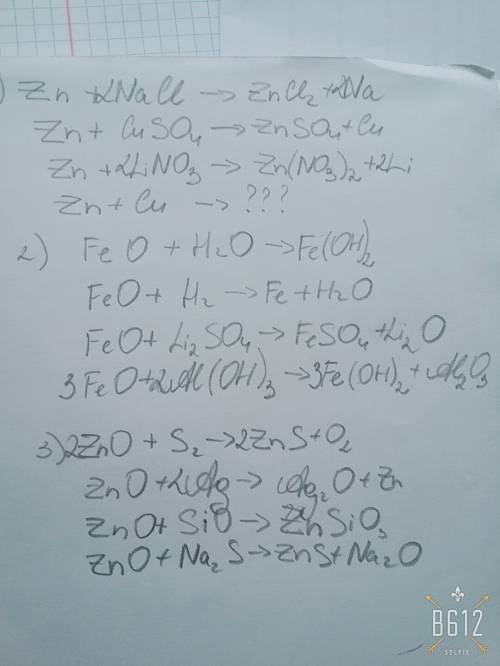 ) Zn + 2NaCl → ZnCl₂ + 2Na
Zn + CuSO₄ → ZnSO₄ + Cu
Zn + 2LiNO₃ → Zn(NO₃)₂ + 2Li
Zn + Cu → ???
2) FeO + H₂O → Fe(OH)₂
FeO + H₂ → Fe + H₂O
FeO + Li₂SO₄ → FeSO₄ + Li₂O
3FeO + 2Al(OH)₃ → 3Fe(OH)₂ + Al₂O₃
3) 2ZnO + S₂ → 2ZnS + O₂
ZnO + 2Ag → Ag₂O + Zn
ZnO + SiO → ZnSiO₃
ZnO + Na₂S → ZnS + Na₂O
B612
SELFIE